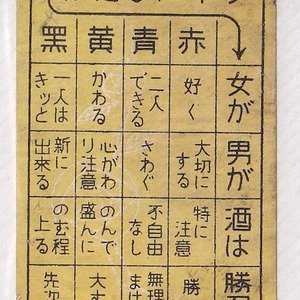 女が
男が
酒は
勝
赤
好く
大切に
する
特に
注意
勝
青
二人
できる
さわぐ
不自由
なし
無理
まけ
黄
かわる
心がわ
り注意
のんで
盛んに
大丈
黑
一人は
きッと
新に
出来る
のむ程
上る
先次